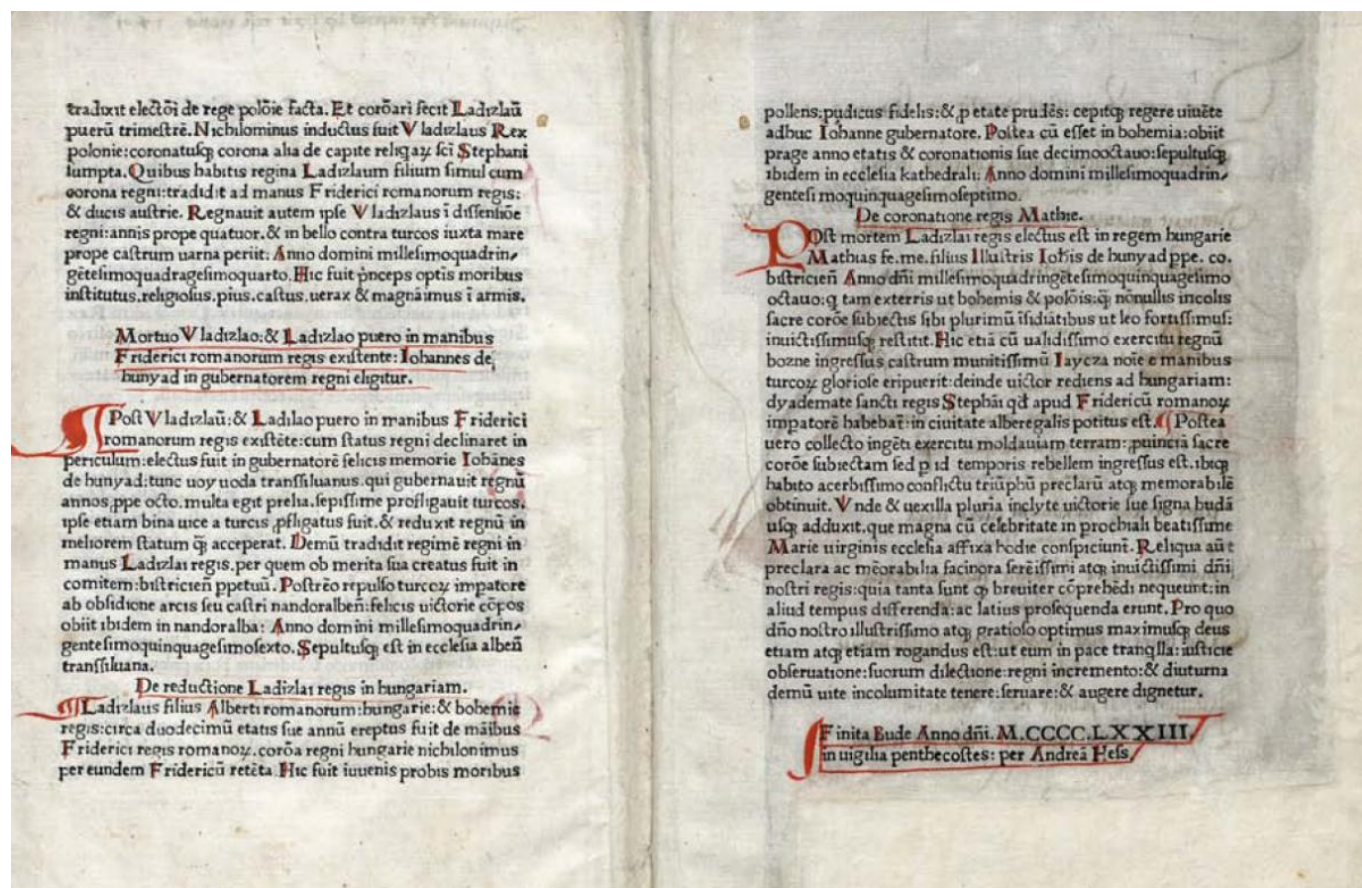 traduxit electōi de rege polōie facta. Et corōari fecit Ladizlaū
puerū trimestrē. Nichilominus inductus fuit Vladizlaus Rex
polonie: coronatusq; corona alia de capite reliqaꝝ sci̅ Stephani
sumpta. Quibus habitis regina Ladizlaum filium simul cum
corona regni: tradidit ad manus Friderici romanorum regis:
& ducis austrie. Regnauit autem ipse Vladizlaus ī dissensiōe
regni: annis prope quatuor. & in bello contra turcos iuxta mare
prope castrum uarna periit: Anno domini millesimoquadrin⸗
gētesimoquadragesimoquarto. Hic fuit pīnceps optīs moribus
institutus. religiosus. pius. castus. uerax & magnāimus ī armis.
Mortuo Vladizlao: & Ladizlao puero in manibus
Friderici romanorum regis existente: Iohannes de
hunyad in gubernatorem regni eligitur.
¶ Post Vladizlaū: & Ladilao puero in manibus Friderici
romanorum regis existēte: cum status regni declinaret in
periculum: electus fuit in gubernatorē felicis memorie Iohānes
de hunyad: tunc uoyuoda transsiluanus. qui gubernauit regnū
annos ꝓpe octo. multa egit prelia. sepissime profligauit turcos.
ipse etiam bina uice a turcis ꝓfligatus fuit. & reduxit regnū in
meliorem statum q̄ acceperat. Demū tradidit regimē regni in
manus Ladizlai regis. per quem ob merita sua creatus fuit in
comitem: bistricieñ ppetuū. Postrēo repulso turcoꝝ impatore
ab obsidione arcis seu castri nandoralbeñ: felicis uictorie cōpos
obiit ibidem in nandoralba: Anno domini millesimoquadrin⸗
gentesimoquinquagesimosexto. Sepultusq; est in ecclesia albeñ
transsiluana.
De reductione Ladizlai regis in hungariam.
¶ Ladizlaus filius Alberti romanorum: hungarie: & bohemie
regis: circa duodecimū etatis sue annū ereptus fuit de māibus
Friderici regis romanoꝝ. corōa regni hungarie nichilonimus
per eundem Fridericū retēta. Hic fuit iuuenis probis moribus
pollens: pudicus fidelis: & ꝓ etate prudēs: cepitq; regere uiuēte
adhuc Iohanne gubernatore. Postea cū esset in bohemia: obiit
prage anno etatis & coronationis sue decimooctauo: sepultusq;
ibidem in ecclesia kathedrali: Anno domini millesimoquadrin⸗
gentesi moquinquagesimoseptimo.
De coronatione regis Mathie.
POst mortem Ladizlai regis electus est in regem hungarie
Mathias fe. me. filius Illustris Iohīs de hunyad ppe. co.
bistricieñ Anno dn̄i millesimoquadringētesimoquinquagesimo
octauo: q tam exterris ut bohemis & polōis: q̄ nōnullis incolis
sacre corōe subiectis sibi plurimū īsidiātibus ut leo fortissimus:
inuictissimusq; restitit. Hic etiā cū ualidissimo exercitu regnū
bozne ingressus castrum munitissimū Iaycza noīe e manibus
turcoꝝ gloriose eripuerit: deinde uictor rediens ad hungariam:
dyademate sancti regis Stephāi qd̄ apud Fridericū romanoꝝ
impatorē habebat̄: in ciuitate alberegalis potitus est. ¶ Postea
uero collecto ingēti exercitu moldauiam terram: ꝓuinciā sacre
corōe subiectam sed p id temporis rebellem ingressus est. ibiq;
habito acerbissimo conflictu triūphū preclarū atq; memorabilē
obtinuit. Vnde & uexilla pluria inclyte uictorie sue signa budā
usq; adduxit. que magna cū celebritate in prochiali beatissime
Marie uirginis ecclesia affixa hodie conspiciunt̄. Reliqua aūt
preclara ac mēorabilia facinora serēissimi atq; inuictissimi dn̄i
nostri regis: quia tanta sunt ꝙ breuiter cōprehēdi nequeunt: in
aliud tempus differenda: ac latius prosequenda erunt. Pro quo
dn̄o nostro illustrissimo atq; gratioso optimus maximusq; deus
etiam atq; etiam rogandus est: ut eum in pace tranqlla: iusticie
obseruatione: suorum dilectione: regni incremento: & diuturna
demū uite incolumitate tenere: seruare: & augere dignetur.
Finita Bude Anno dn̄i. M.CCCC.LXXIII.
in uigilia penthecostes: per Andreā Hess.